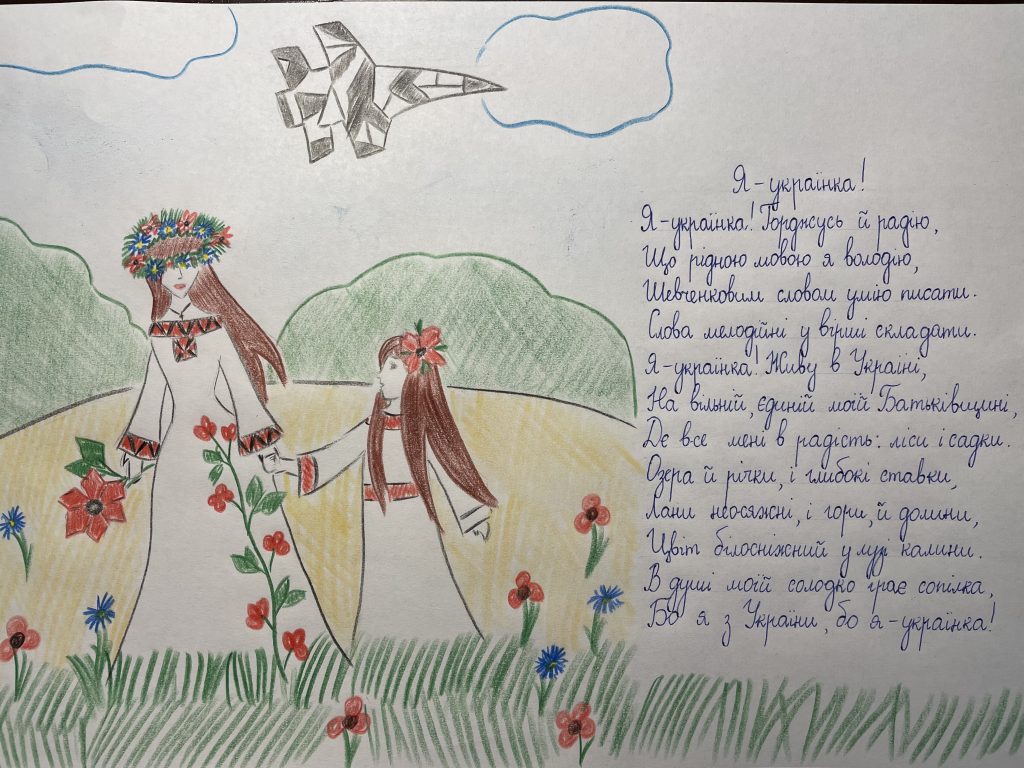 Я - українка!
Я - українка! Горджусь й радію,
Що рідною мовою я володію,
Шевченковим словом умію писати.
Слова мелодійні у вірші складати.
Я - українка! Живу в Україні,
На вільній, єдиній моїй Батьківщині,
Де все мені в радість: ліси і садки.
Озера й річки, і глибокі ставки,
Лани неосяжні, і гори, й долини,
Цвіт білосніжний у лузі калини.
В душі моїй солодко грає сопілка,
Бо я з України, бо я - українка!